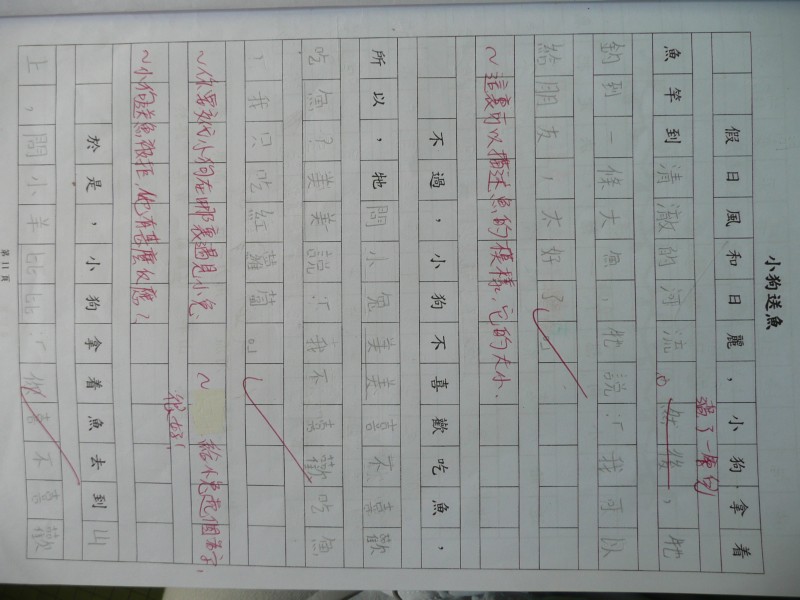 小狗送魚
假日風和日麗，小狗拿着
魚竿到清澈的河流。然後，牠
釣到一條大魚，牠說：「我可以
給朋友，太好了！」
~這裏可以描述魚的模樣，它的大小.
不過，小狗不喜歡吃魚，
所以，牠問小兔美美喜不喜歡
吃魚？美美說：「我不喜歡吃魚
，我只吃紅蘿蔔。」
~你要寫小狗在哪裏遇見小兔、
~給小兔起個名字，
很好！
~小狗送魚被拒，他有甚麼反應？
於是，小狗拿着魚去到山
上，問小羊比比：「你喜不喜歡
第11頁